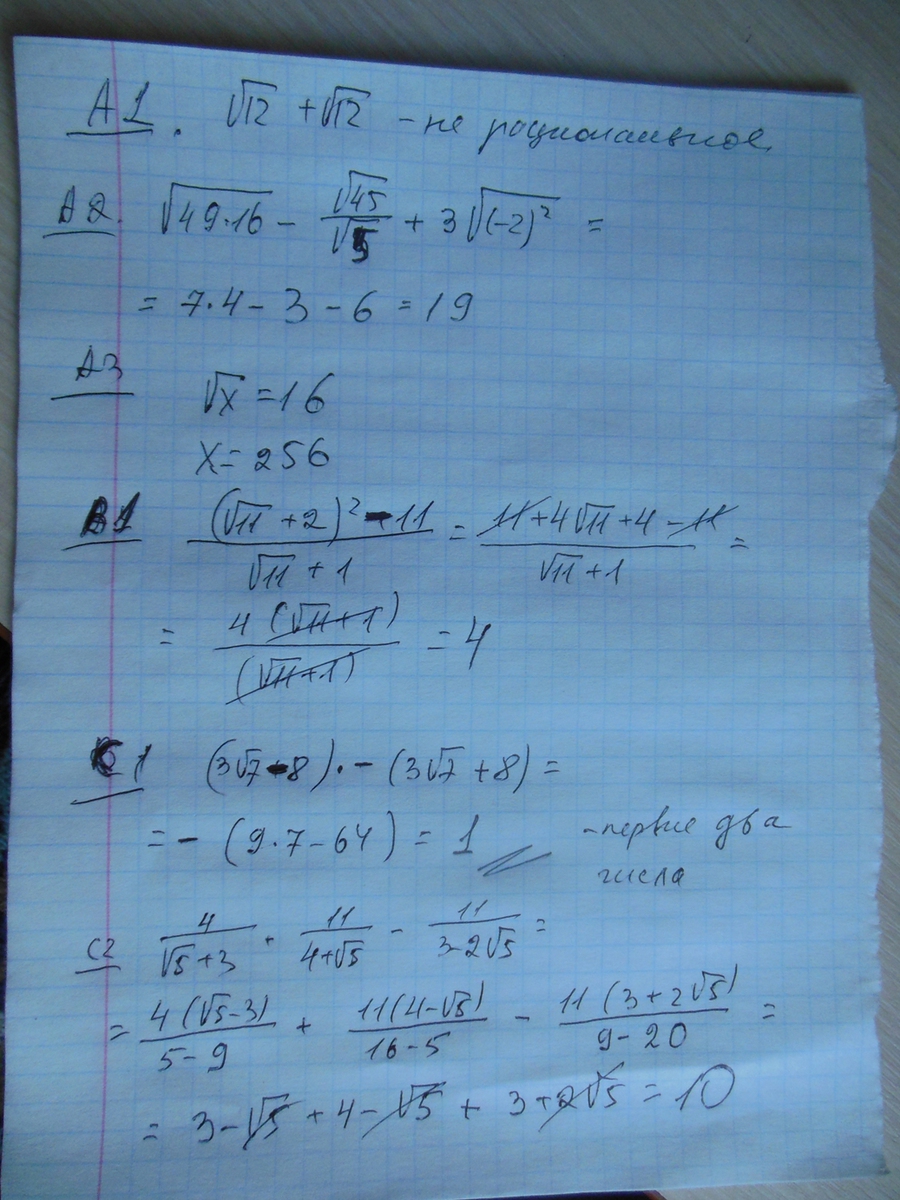 A1. √12 + √12 - не рационально.
A2. √(49·16) - √45/√5 + 3√((-2)²) =
= 7·4 - 3 - 6 = 19
A3
√x = 16
x = 256
B1 ((√11 + 2)² - 11)/(√11 + 1) = (11 + 4√11 + 4 - 11)/(√11 + 1) =
= 4(√11 + 1)/(√11 + 1) = 4
C1 (3√7 - 8)·-(3√7 + 8) =
= - (9·7 - 64) = 1 - первые два
числа
C2 4/(√5 + 3) + 11/(4 + √5) - 11/(3 - 2√5) =
= 4(√5 - 3)/(5 - 9) + 11(4 - √5)/(16 - 5) - 11(3 + 2√5)/(9 - 20) =
= 3 - √5 + 4 - √5 + 3 + 2√5 = 10